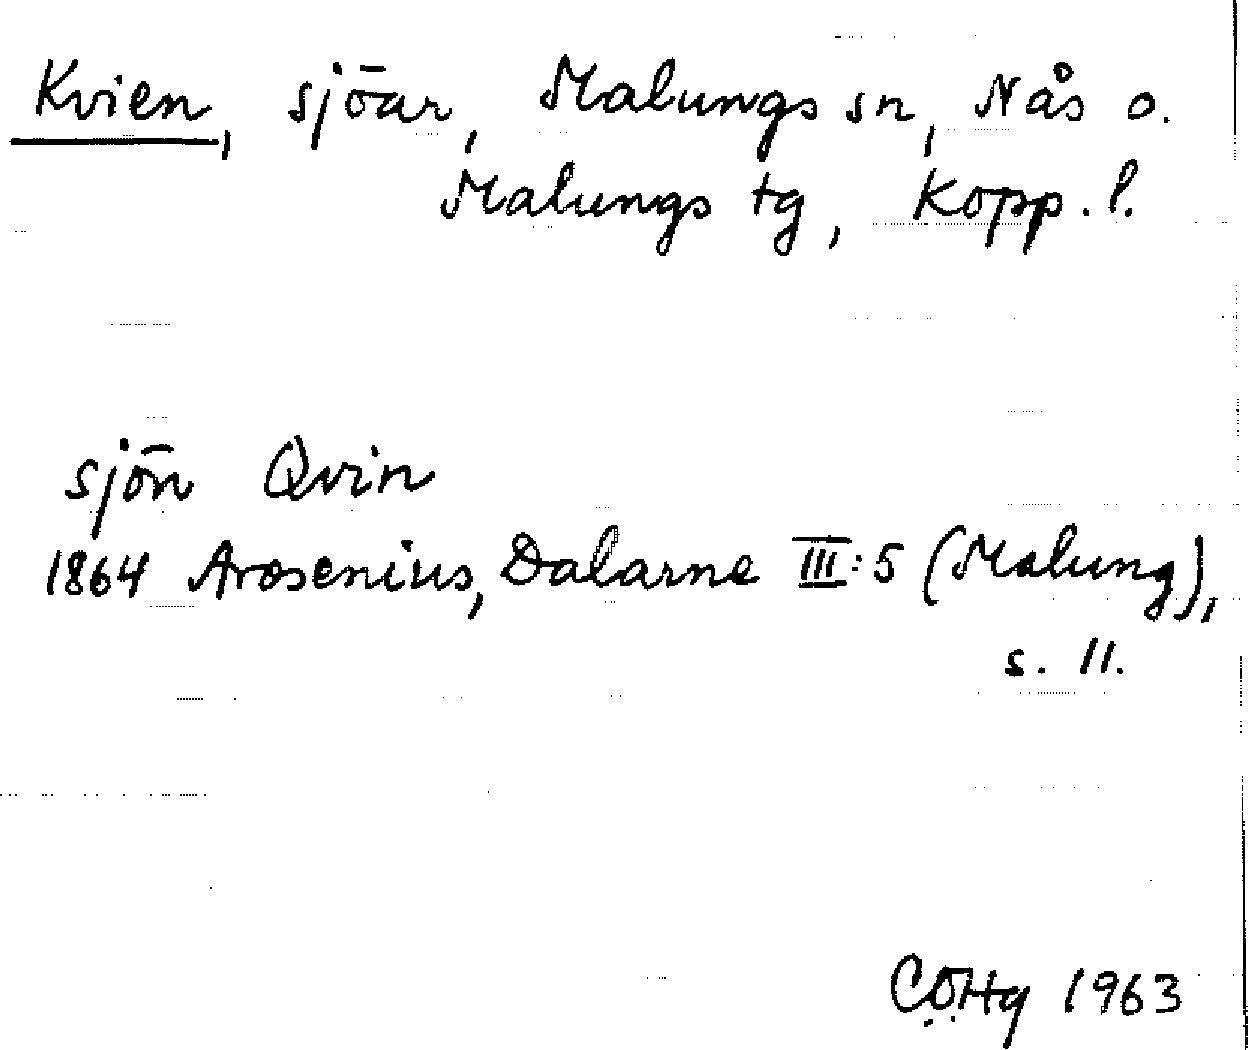 Kvien, sjöar, Malungs sn, Nås o.
Malungs tg, Kopp. l.
sjön Qvin
1864 Arosenius, Dalarne III:5 (Malung),
s. 11.
CÖHg 1963